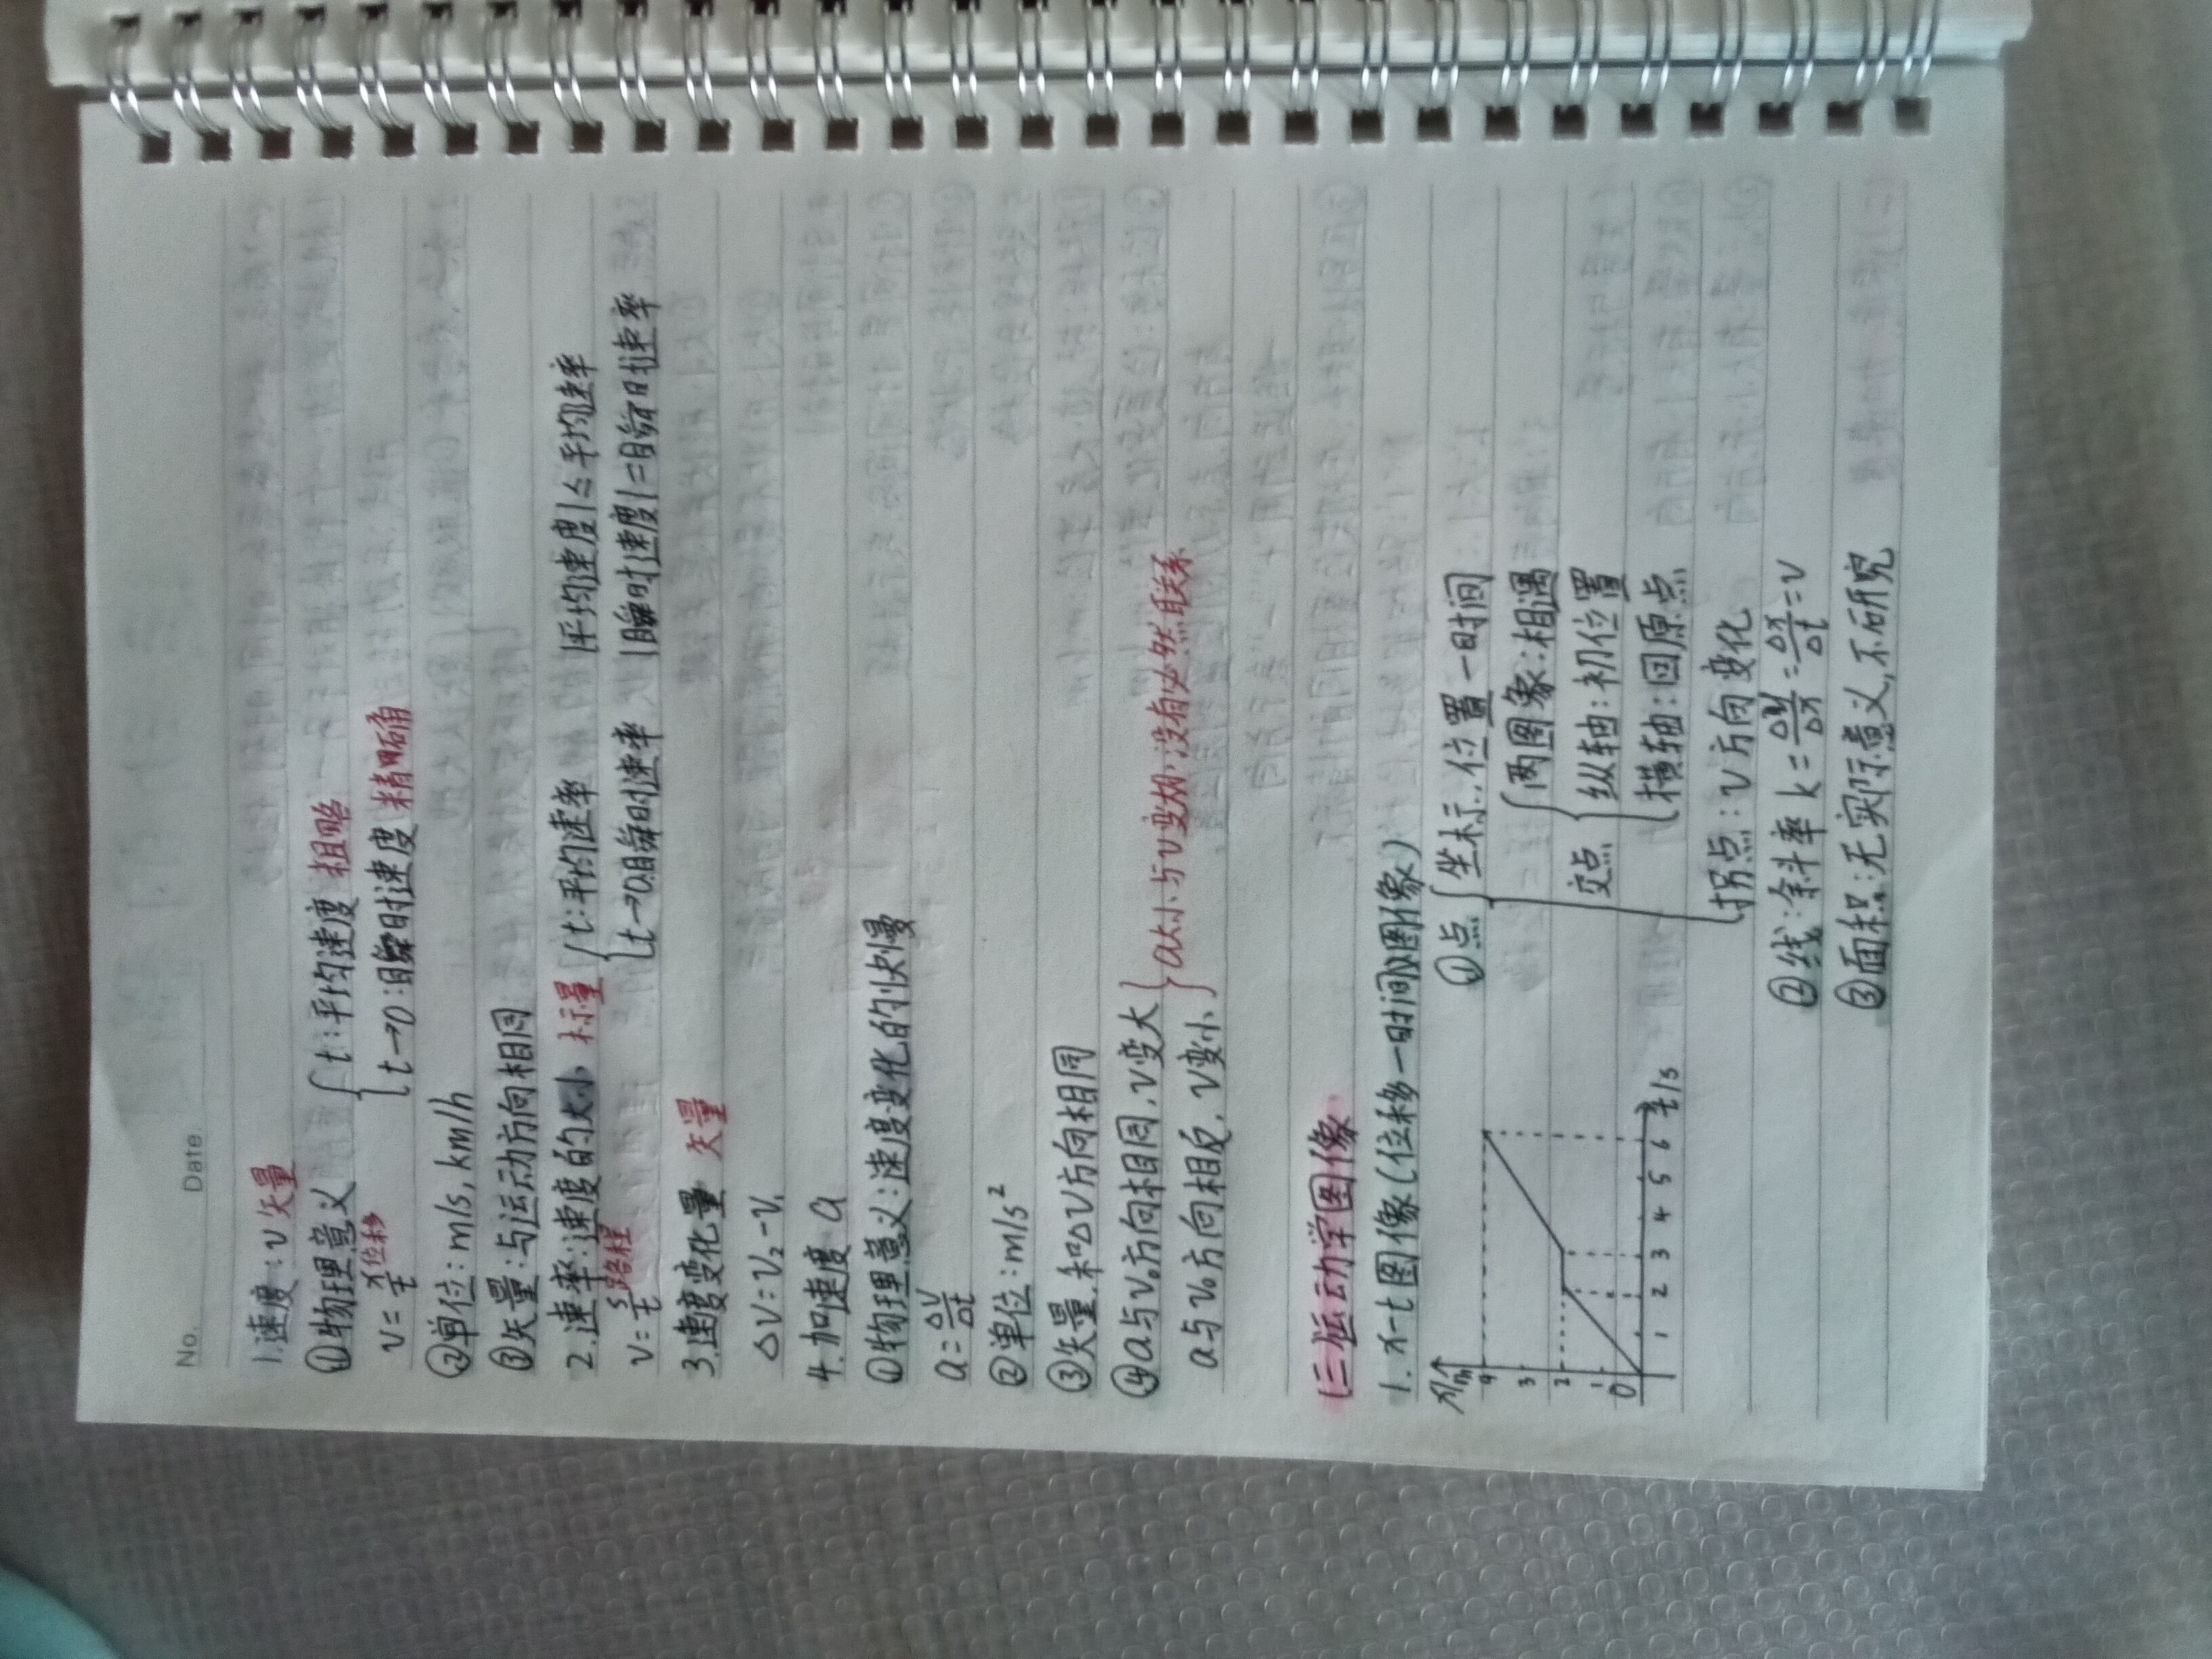 No.
Date.
1.速度:v 矢量
①物理意义 { t:平均速度 粗略
v=x/t 位移 { t→0:瞬时速度 精确
②单位:m/s,km/h
③矢量:与运动方向相同
2.速率:速度的大小 标量 { t:平均速率 |平均速度|≤平均速率
v=s/t 路程 { t→0瞬时速率 |瞬时速度|=瞬时速率
3.速度变化量 矢量
△v=v₂-v₁
4.加速度 a
①物理意义:速度变化的快慢
a=△v/△t
②单位:m/s²
③矢量,和△v方向相同
④a与v₀方向相同,v变大
a与v₀方向相反,v变小 } a大小与v变化没有必然联系
(三)运动学图像
1.x-t图像(位移-时间图像)
x/m
4
3
2
1
0
1 2 3 4 5 6 t/s
①点 { 坐标:位置-时间
交点 { 两图象:相遇
纵轴:初位置
横轴:回原点
拐点:v方向变化
②线:斜率k=△y/△x=△x/△t=v
③面积:无实际意义,不研究